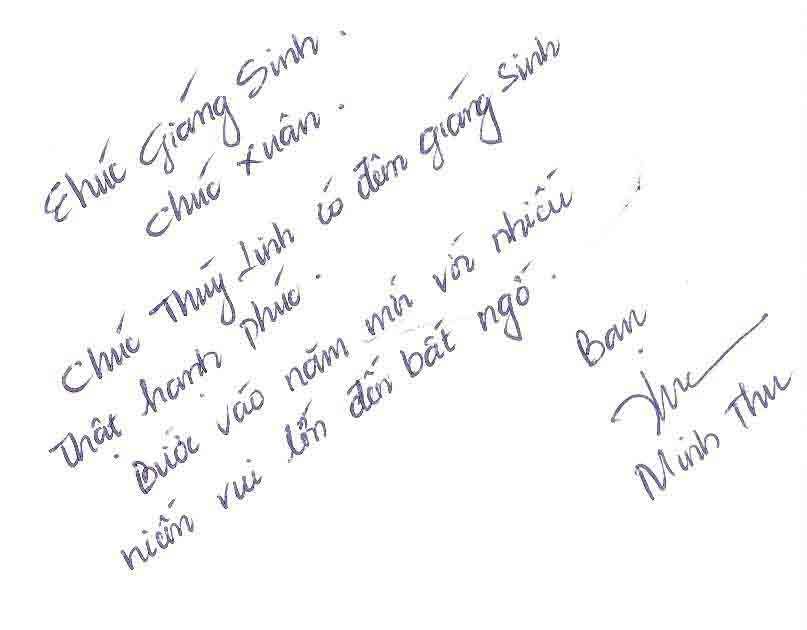 Chúc Giáng Sinh.
Chúc Xuân.
Chúc Thùy Linh có đêm giáng sinh
thật hạnh phúc.
Bước vào năm mới với nhiều
niềm vui lớn đến bất ngờ.
Bạn
Thu
Minh Thu